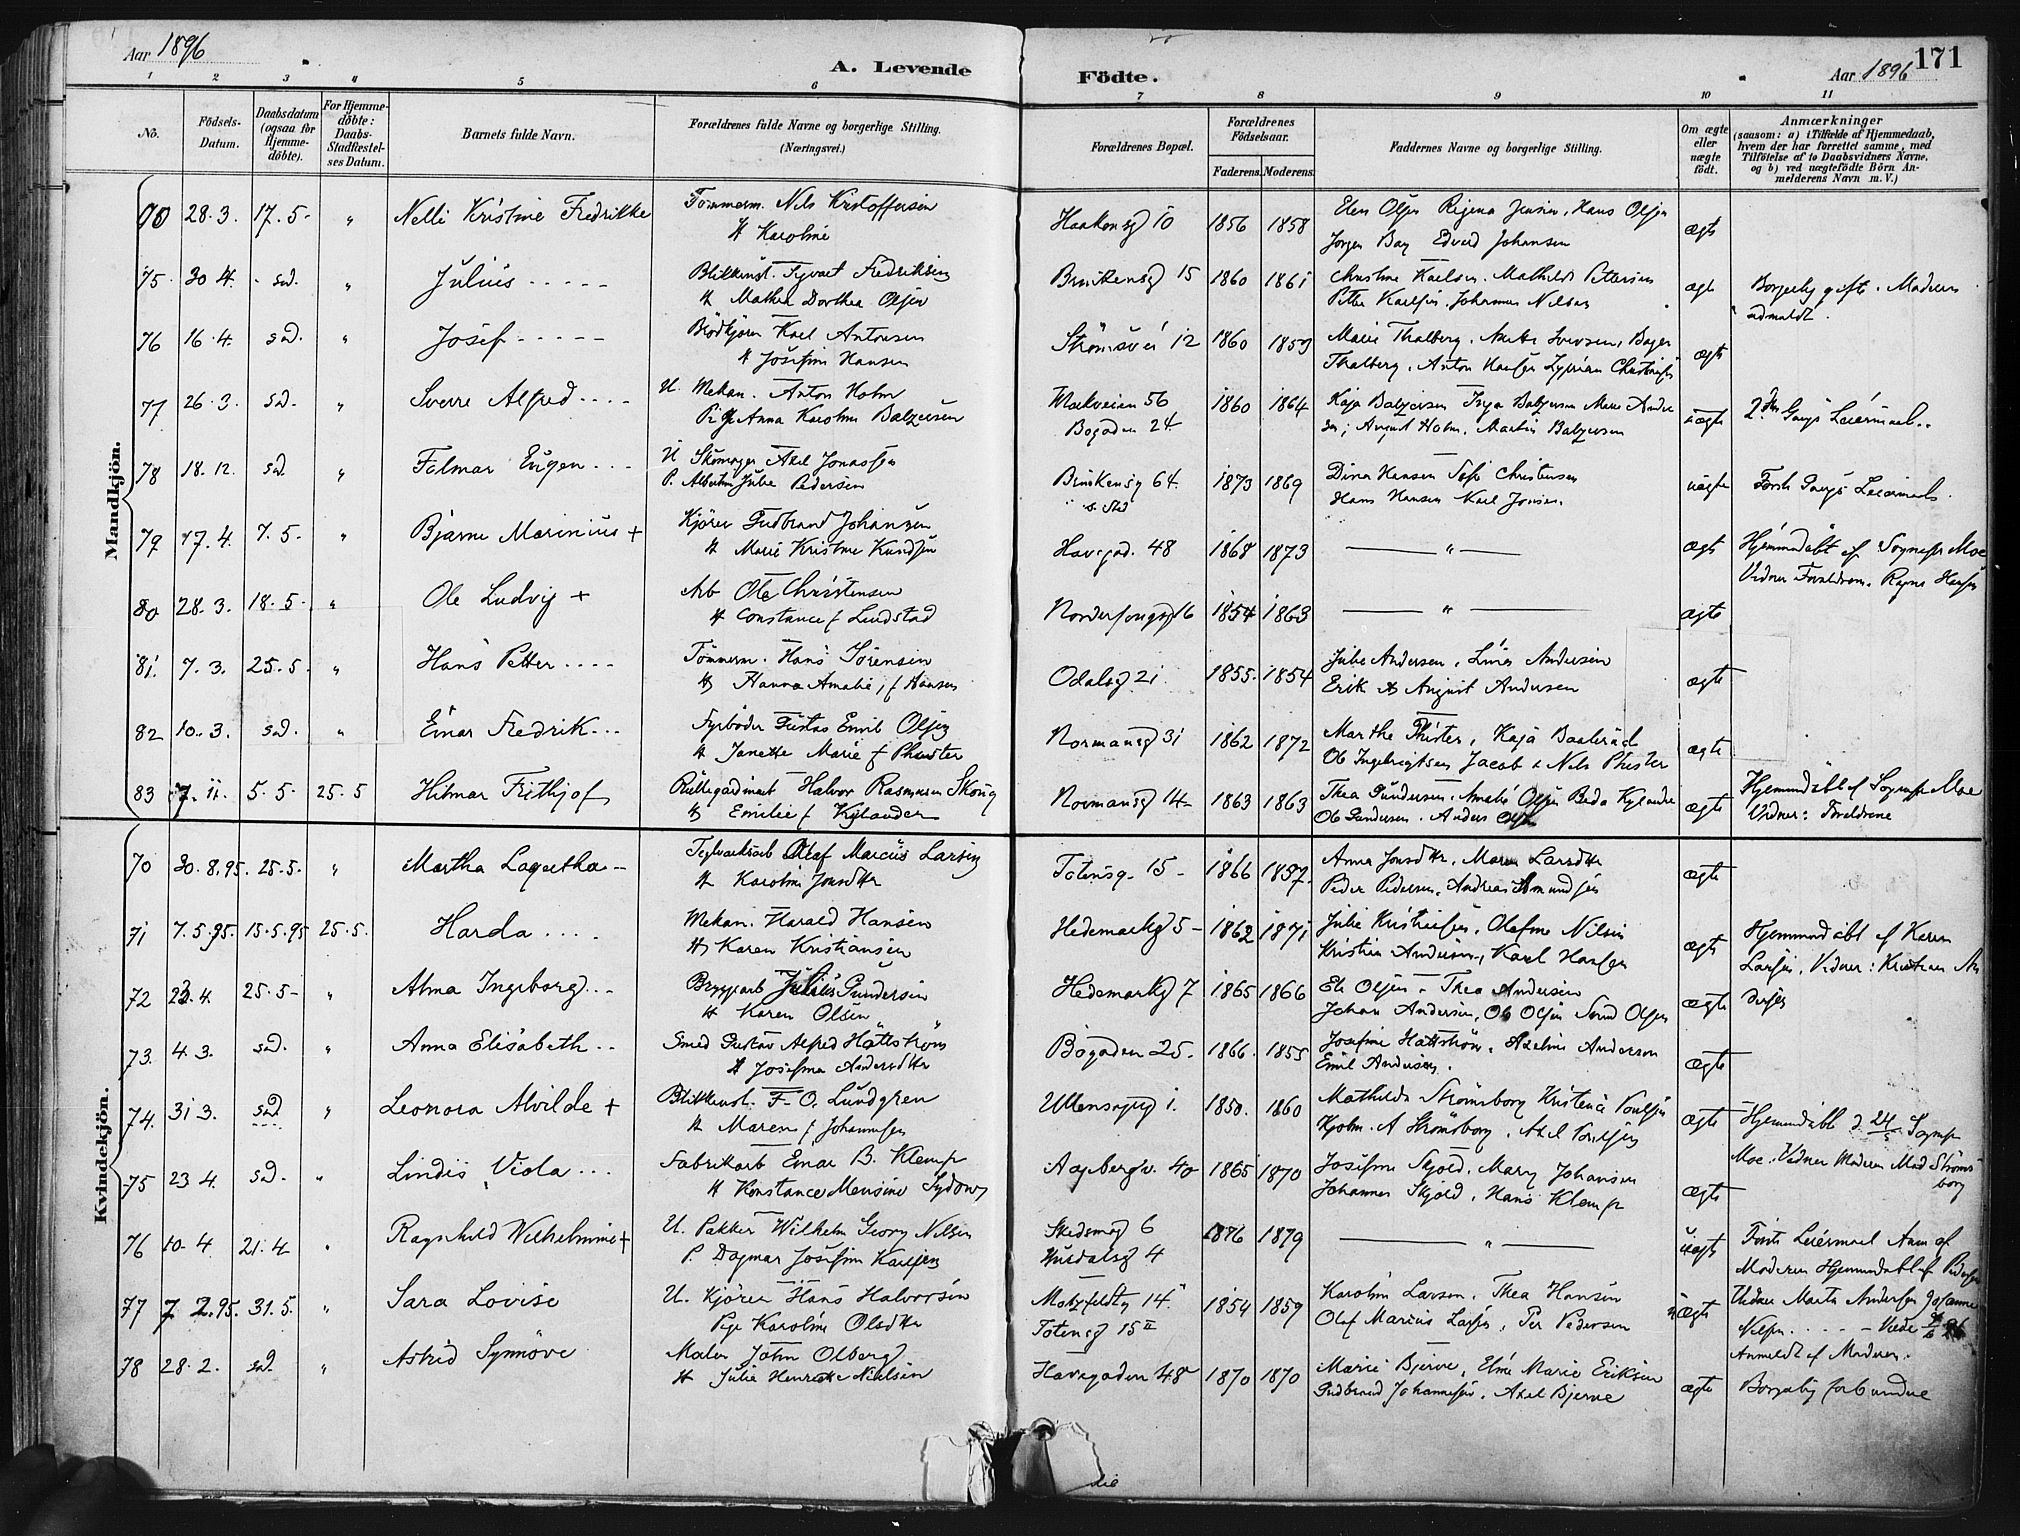 Aar 1896
A. Levende
Födte.
Aar 1896
171
1 2 3 4 5 6 7 8 9 10 11
No.
Födsels-
Datum.
Daabsdatum
(ogsaa for
Hjemme-
döbte).
For Hjemme-
döbte:
Daabs-
Stadfæstel-
ses Datum.
Barnets fulde Navn.
Forældrenes fulde Navne og borgerlige Stilling.
(Næringsvei.)
Forældrenes Bopæl.
Forældrenes
Födselsaar.
Faderens. Moderens.
Faddernes Navne og borgerlige Stilling.
Om ægte
eller
uægte
födt.
Anmærkninger
(saasom: a) i Tilfælde af Hjemmedaab,
hvem der har forrettet samme, med
Tilföielse af to Daabsvidners Navne,
og b) ved uægtefödte Börn An-
melderens Navn m. V.)
Mandkjön.
28.3. 17.5- " Nelli Kristine Fredrikke Tömmerm. Nils Kristoffersen
H Karoline
Haakonsg 10 1856 1858 Elen Olsen Regina Jensen, Hans Olsen
Jörgen Bay Edvard Johansen ægte
75 30 4. sad. " Julius Blikkensl. Syvert Fredriksen
H Mathea Dorthea Olsen
Brinkensg 15 1860 1861 Christine Karlsen. Mathilde Pettersen
Petter Karlsen. Johannes Nilsen ægte Borgerlig gifte. Moderen
udmeldt.
76 16.4. sad. " Josef Brödkjörer Karl Antonsen
H Josefine Hansen
Strömsvei 12 1860 1859 Marie Thalberg.
Thalberg. Anton Hansen ægte
77 26.3. sad. " Sverre Alfred U. Mekan. Anton Holm
Pige Anna Karoline Balzersen
Makveien 56
Bogaden 24 1860 1864 Kaja Balzersen
August Holm. Martin Balzersen uægte 2den Gangs Leiermaal.
78 18.12. sad. " Falmar Eugen U Skomager Axel Jonassen
P. Albertine Julie Pedersen
Brinkensg 64
s. Sted 1873 1869 Dina Hansen Sofie Christensen
Hans Hansen Karl Jonsen. uægte Förste Gangs Leiermaal.
79 17.4. 7.5- " Bjarne Marinius + Kjörer Gudbrand Johansen
H Marie Kristine Knudsen
Havegad. 48 1868 1873 " ægte Hjemmedöbt af Sognepr Moe
Vidner Forældrene. Ragna Hansen
80 28.3. 18.5- " Ole Ludvig + Arb Ole Christensen
H Constance f Lindstad
16 1854 1863 " ægte
81. 7.3. 25.5- " Hans Petter Tömmerm. Hans Sörensen
H Hanna Amalie, f Hansen
Odalsg 21 1855. 1854 Julie Andersen, Lina Andersen
Erik & August Andersen ægte
82 10.3. sad. " Einar Fredrik Fyrböder Gustav Emil Olsen
H Janette Marie f Phister
Normansg 31 1862 1872 Marthe Phister, Kaja
Ole Ingebrigtsen Jacob & Nils Phister ægte
83 7.11. 5.5- 25.5 Hilmar Frithjof Halvor Rasmussen Skoug
H Emilie f Kylander
Normansg 14 1863 1863 Thea Gundersen. Amalie Olsen Beda Kylander
Ole Gundersen. Anders Olsen ægte Hjemmedöbt af Sognepr Moe
Vidner: Forældrene
Kvindekjön.
70 30.8.95. 25.5. " Martha Lagertha Teglværksarb Olaf Marcus Larsen
H Karoline Jonsdtr
Totensg. 15 1866 1857. Anna Jonsdttr, Maren Larsdttr
Peder Pedersen. Andreas Amundsen ægte
71 7.5.95. 15.5.95 25.5. Harda Mekan. Harald Hansen
H Karen Kristiansen
Hedemarkg 5 1862 1871 Julie Kristensen, Olefine Nilsen
Kristine Andersen, Karl Hansen ægte Hjemmedöbt af Karen
Larsen. Vidner: Kristian An
dersen
72 23.4. 25.5- " Alma Ingeborg Bryggearb Julius Gundersen
H Karen Olsen
Hedemarkg 7 1865 1866 Olsen - Thea Andersen
Johan Andersen, Ole Olsen Olsen ægte
73. 4 3. sad. " Anna Elisabeth Smed Gustav Alfred Hättström
H Josefina Andersdttr
Bogaden 25. 1866. 1855 Josefine Hättström. Axeline Anderson
Emil Andersen. ægte
74. 31 3. sad " Leonora Alvilde + Blikkensl. F. O. Lundgren
H Maren f Johannessen
Ullensagerg 1. 1850. 1860 Mathilde Strömsborg Kristence Poulsen
A Strömsborg. Axel Poulsen ægte Hjemmedöbt d 24/5 Sognepr
Moe. Vidner Moderen Mad Ströms
borg
75 23 4. sad. " Lindis Viola Fabrikarb Einar B. Klemp
H Konstance Mensine Sydow
Aagebergv. 40 1865 1870 Josefine Skjold. Mary Johansen
Johannes Skjold, Hans Klemp ægte
76 10.4. 21.4 " Ragnhild Wilhelmine + U. Pakker Wilhelm Georg Nilsen
P. Dagmar Josefine Karlsen
Skedsmog 6
Hurdalsg 4 1876 1879 " uægte Förste Leiermaal Anm af
Moderen Hjemmedöbt af Pedersen
Vidner Marta Andersen Johanne
Nilsen.
77 7 2.95. 31.5. " Sara Lovise U. Kjörer Hans Halvorsen
Pige Karoline Olsdttr
Motzfeldtg 14
Totensg 15 II 1854 1859 Karoline Larsen, Thea Hansen
Olaf Marius Larsen. Per Pedersen uægte
Anmeldt af Moderen.
78 28.2. sad. " Astrid Synnöve Maler John Olberg
H Julie Henriette Nielsen
Havegaden 48 1870 1870 Marie Bjerve, Eline Marie Eriksen
Gudbrand Johannessen. Axel Bjerve ægte Borgerlig forbundne